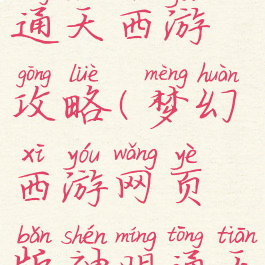 通天西游
gōng lüè mèng huàn
攻略(梦幻
xī yóu wǎng yè
西游网页
bǎn shén míng tōng tiān
版神明通天